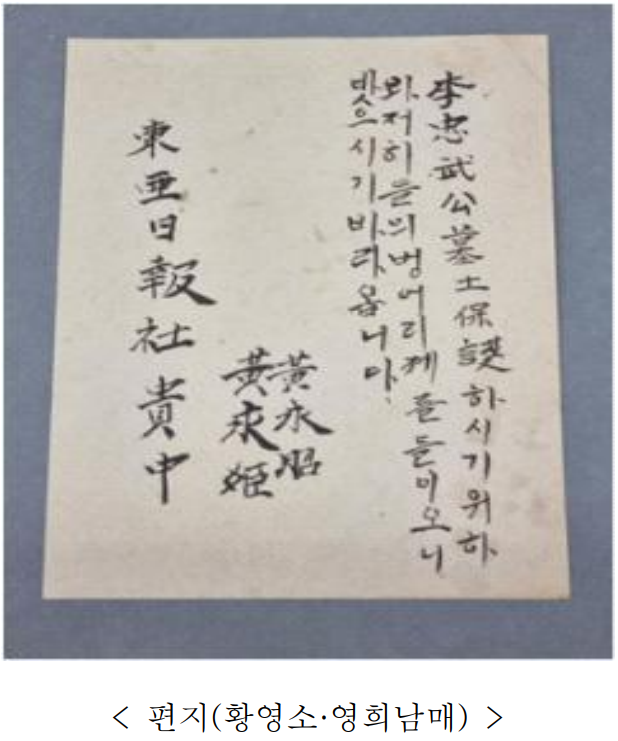 李忠武公墓土保護하시기위하
와저히들의벙어리께를들이오니
밧으시기바라옵니다.
黃永昭
黃永姬
東亜日報社貴中
< 편지(황영소·영희남매) >